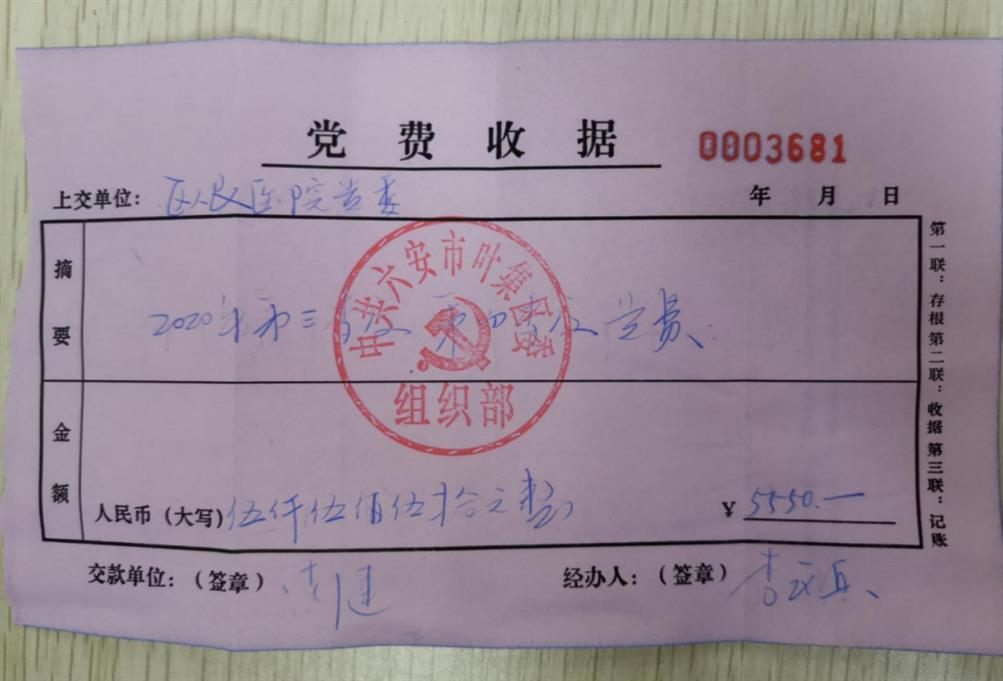 党费收据 0003681
上交单位: 区人民医院党委 年 月 日
摘要
2020年第三季度 第四季度党费
中共六安市叶集区委
组织部
金额
人民币（大写）伍仟伍佰伍拾元整 ¥ 5550.—
交款单位:（签章）
经办人:（签章）
第一联:存根第二联:收据 第三联:记账